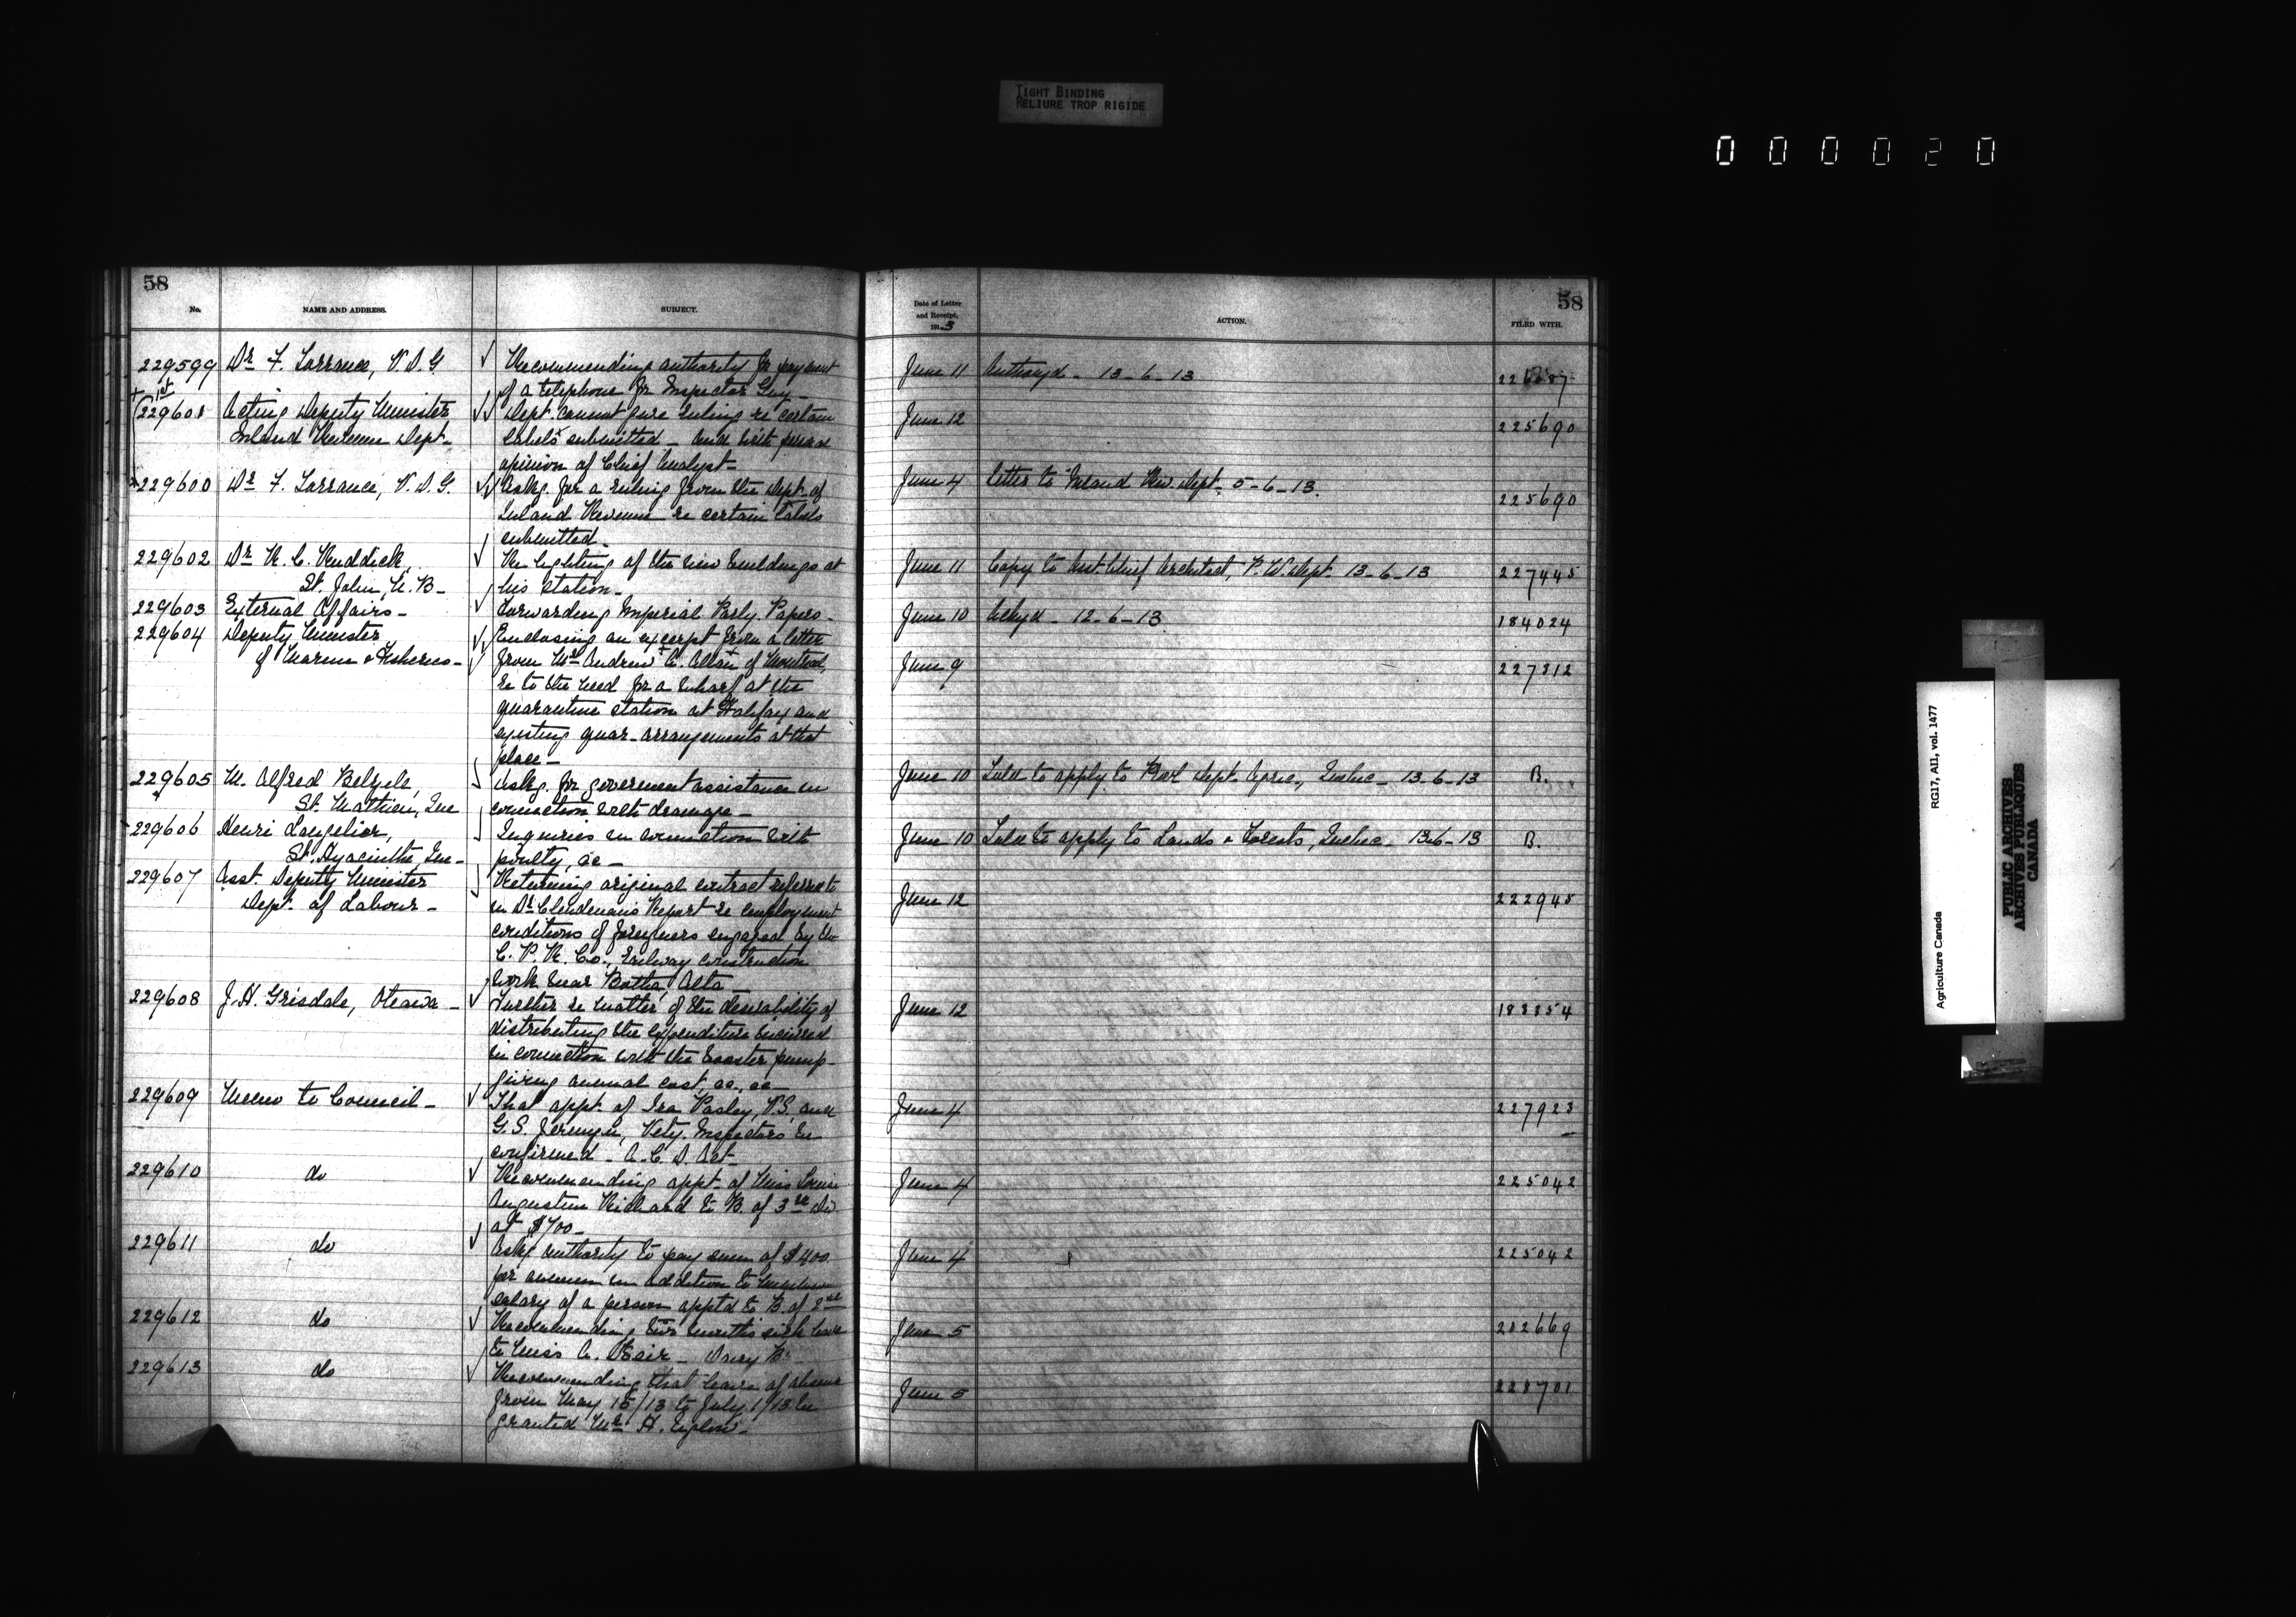 TIGHT BINDING
RELIURE TROP RIGIDE
000020
58
No.
NAME AND ADDRESS.
SUBJECT.
Date of Letter
and Receipt,
1913
ACTION.
58
FILED WITH.
229599 Dr F. Torrance, V.D.G Recommending authority for payment June 11 Authorzd - 13-6-13
of a telephone for Inspector Guy
1st
229601 Acting Deputy Minister Dept cannot give ruling re certain June 12 225690
Inland Revenue Dept- labels submitted - And with
opinion of Chief Analyst-
229600 Dr F. Torrance, V.D.G. Askg. for a ruling from the Dept. of June 4 Letter to Inland Rev. Dept. 5-6-13. 225690
Inland Revenue re certain labels
submitted-
229602 Dr R. C. Ruddick, Re lighting of the new buildings at June 11 Copy to Asst. Chief Architect, P.W. Dept. 13-6-13 227445
St. John, N.B- his station-
229603 External Affairs- Forwarding Imperial Parly. Papers- June 10 Ackgd - 12-6-13 184024
229604 Deputy Minister Enclosing an excerpt from a letter June 9 227312
of Marine & Fisheries- from Mr Andrew A. Allan of Montreal,
re to the need for a wharf at the
quarantine station at Halifax and
existing quar- arrangements at that
place-
229605 M. Alfred Belzile, Askg. for goverment assistance in June 10 Told to apply to Prov Dept. Agric., Quebec- 13-6-13 B.
St. Mathieu, Que connection with drainage-
229606 Henri Langelier, Inquiries in connection with June 10 Told to apply to Lands & Forests, Quebec- 13-6-13 B.
St. Hyacinthe, Que- poulty, &c-
229607 Asst. Deputy Minister Returning original contract referred to June 12 222945
Dept. of Labour- in Dr Clendenan's Report re employment
conditions of foreigners engaged by the
C.P.R. Co., railway construction
work near Botha, Alta-
229608 J.H. Grisdale, Ottawa- Further re matter of the desirability of June 12 183354
distributing the expenditure incurred
in connection with the booster pump-
giving annual cost, &c, &c-
229609 Memo to Council- That appt. of Ira Pasley, V.S. and June 4 227923
G.S. Vety. Inspectors be
confirmed- A.C.D. Act-
229610 do Recommending appt. of Miss Louise June 4 225042
Augustine Richard to B. of 3rd Div
at $700-
229611 do Askg authority to pay sum of $400 June 4 225042
per annum in addition to minimum
salary of a person apptd to B. of 2nd
229612 do Recommending two months sick leave June 5 202669
to Miss A. Dairy Br
229613 do Recommending that leave of absence June 5 228701
from May 15/13 to July 1/13 be
granted Mr H.
Agriculture Canada RG17, AII, vol. 1477
PUBLIC ARCHIVES
ARCHIVES PUBLIQUES
CANADA